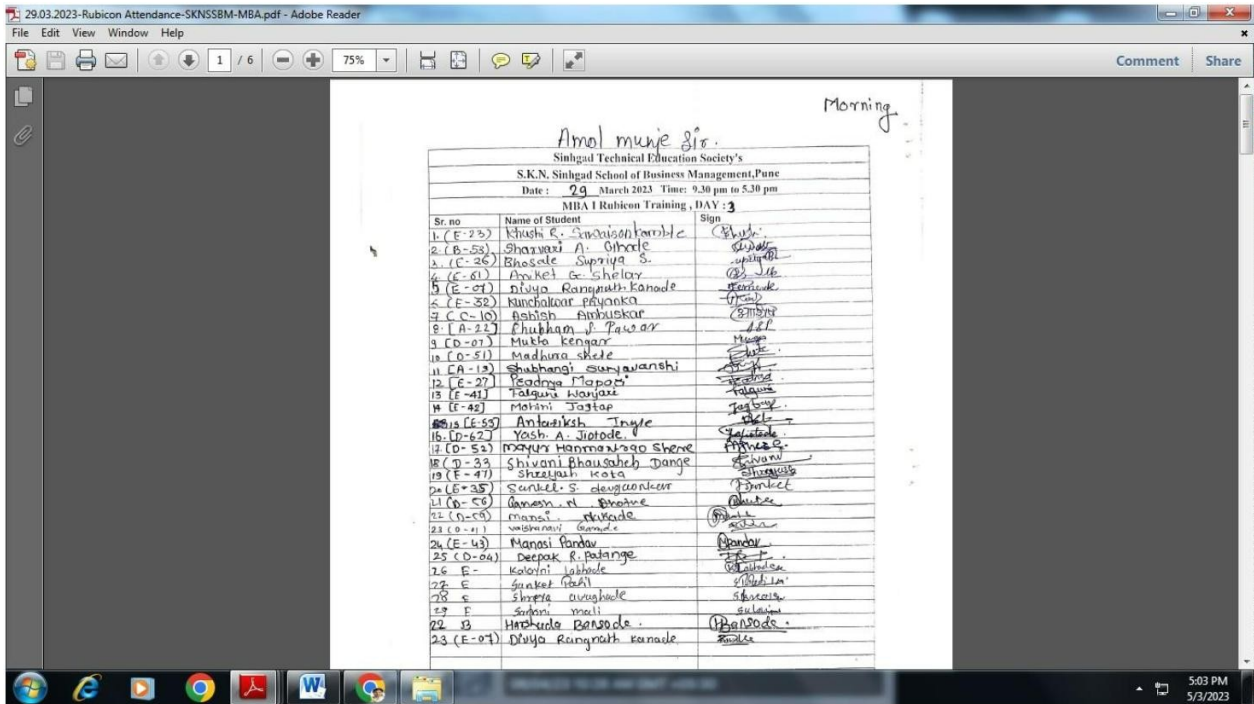 29.03.2023-Rubicon Attendance-SKNSSBM-MBA.pdf - Adobe Reader
File Edit View Window Help
1 / 6 75% Comment Share
Morning
Amol munje Sir.
Sinhgad Technical Education Society's
S.K.N. Sinhgad School of Business Management,Pune
Date : 29 March 2023 Time: 9.30 pm to 5.30 pm
MBA I Rubicon Training , DAY : 3
Sr. no Name of Student Sign
1. (E-23) Khushi R.
2. (B-53) Sharvari A.
3. (E-26) Bhosale Supriya S.
4. (E-61) Aniket G. Shelar
5 (E-07) Divya Rangnath Kanade
6 (E-32) Kunchalwar Priyanka
7 (C-10) Ashish Ambuskar
8. [A-22] Shubham S. Pawar
9 (D-07) Mukta Kengar
10 (D-51) Madhura Shete
11 [A-13] Shubhangi Suryavanshi
12 [E-27] Pradnya Mapari
13 [E-41] Falguni Wanjari Falguni
14 [E-42] Mohini Jagtap Jagtap.
15 [E-59] Antariksh Ingle
16. [D-62] Yash. A. Jiotode.
17. (D-52) Mayur Hanmantrao Shene
18 (D-33 Shivani Bhausaheb Dange Shivani
19 (E-47) Shreyash Kota Shreyash
20 (E-35) Sanket. S. devgaonkar
21 (D-56) Ganesh. N
22 (D-59) mansi. Nakade
23 (D-01) vaishanavi
24 (E-43) Manasi Pandav Pandav
25 (D-04) Deepak R. Patange
26 E- Kalayni Labhade
27 E Sanket Patil
28 E Shreya avaghade
29 E mali
22 B Harshada Bansode. HBansode.
23 (E-07) Divya Rangnath Kanade
5:03 PM
5/3/2023